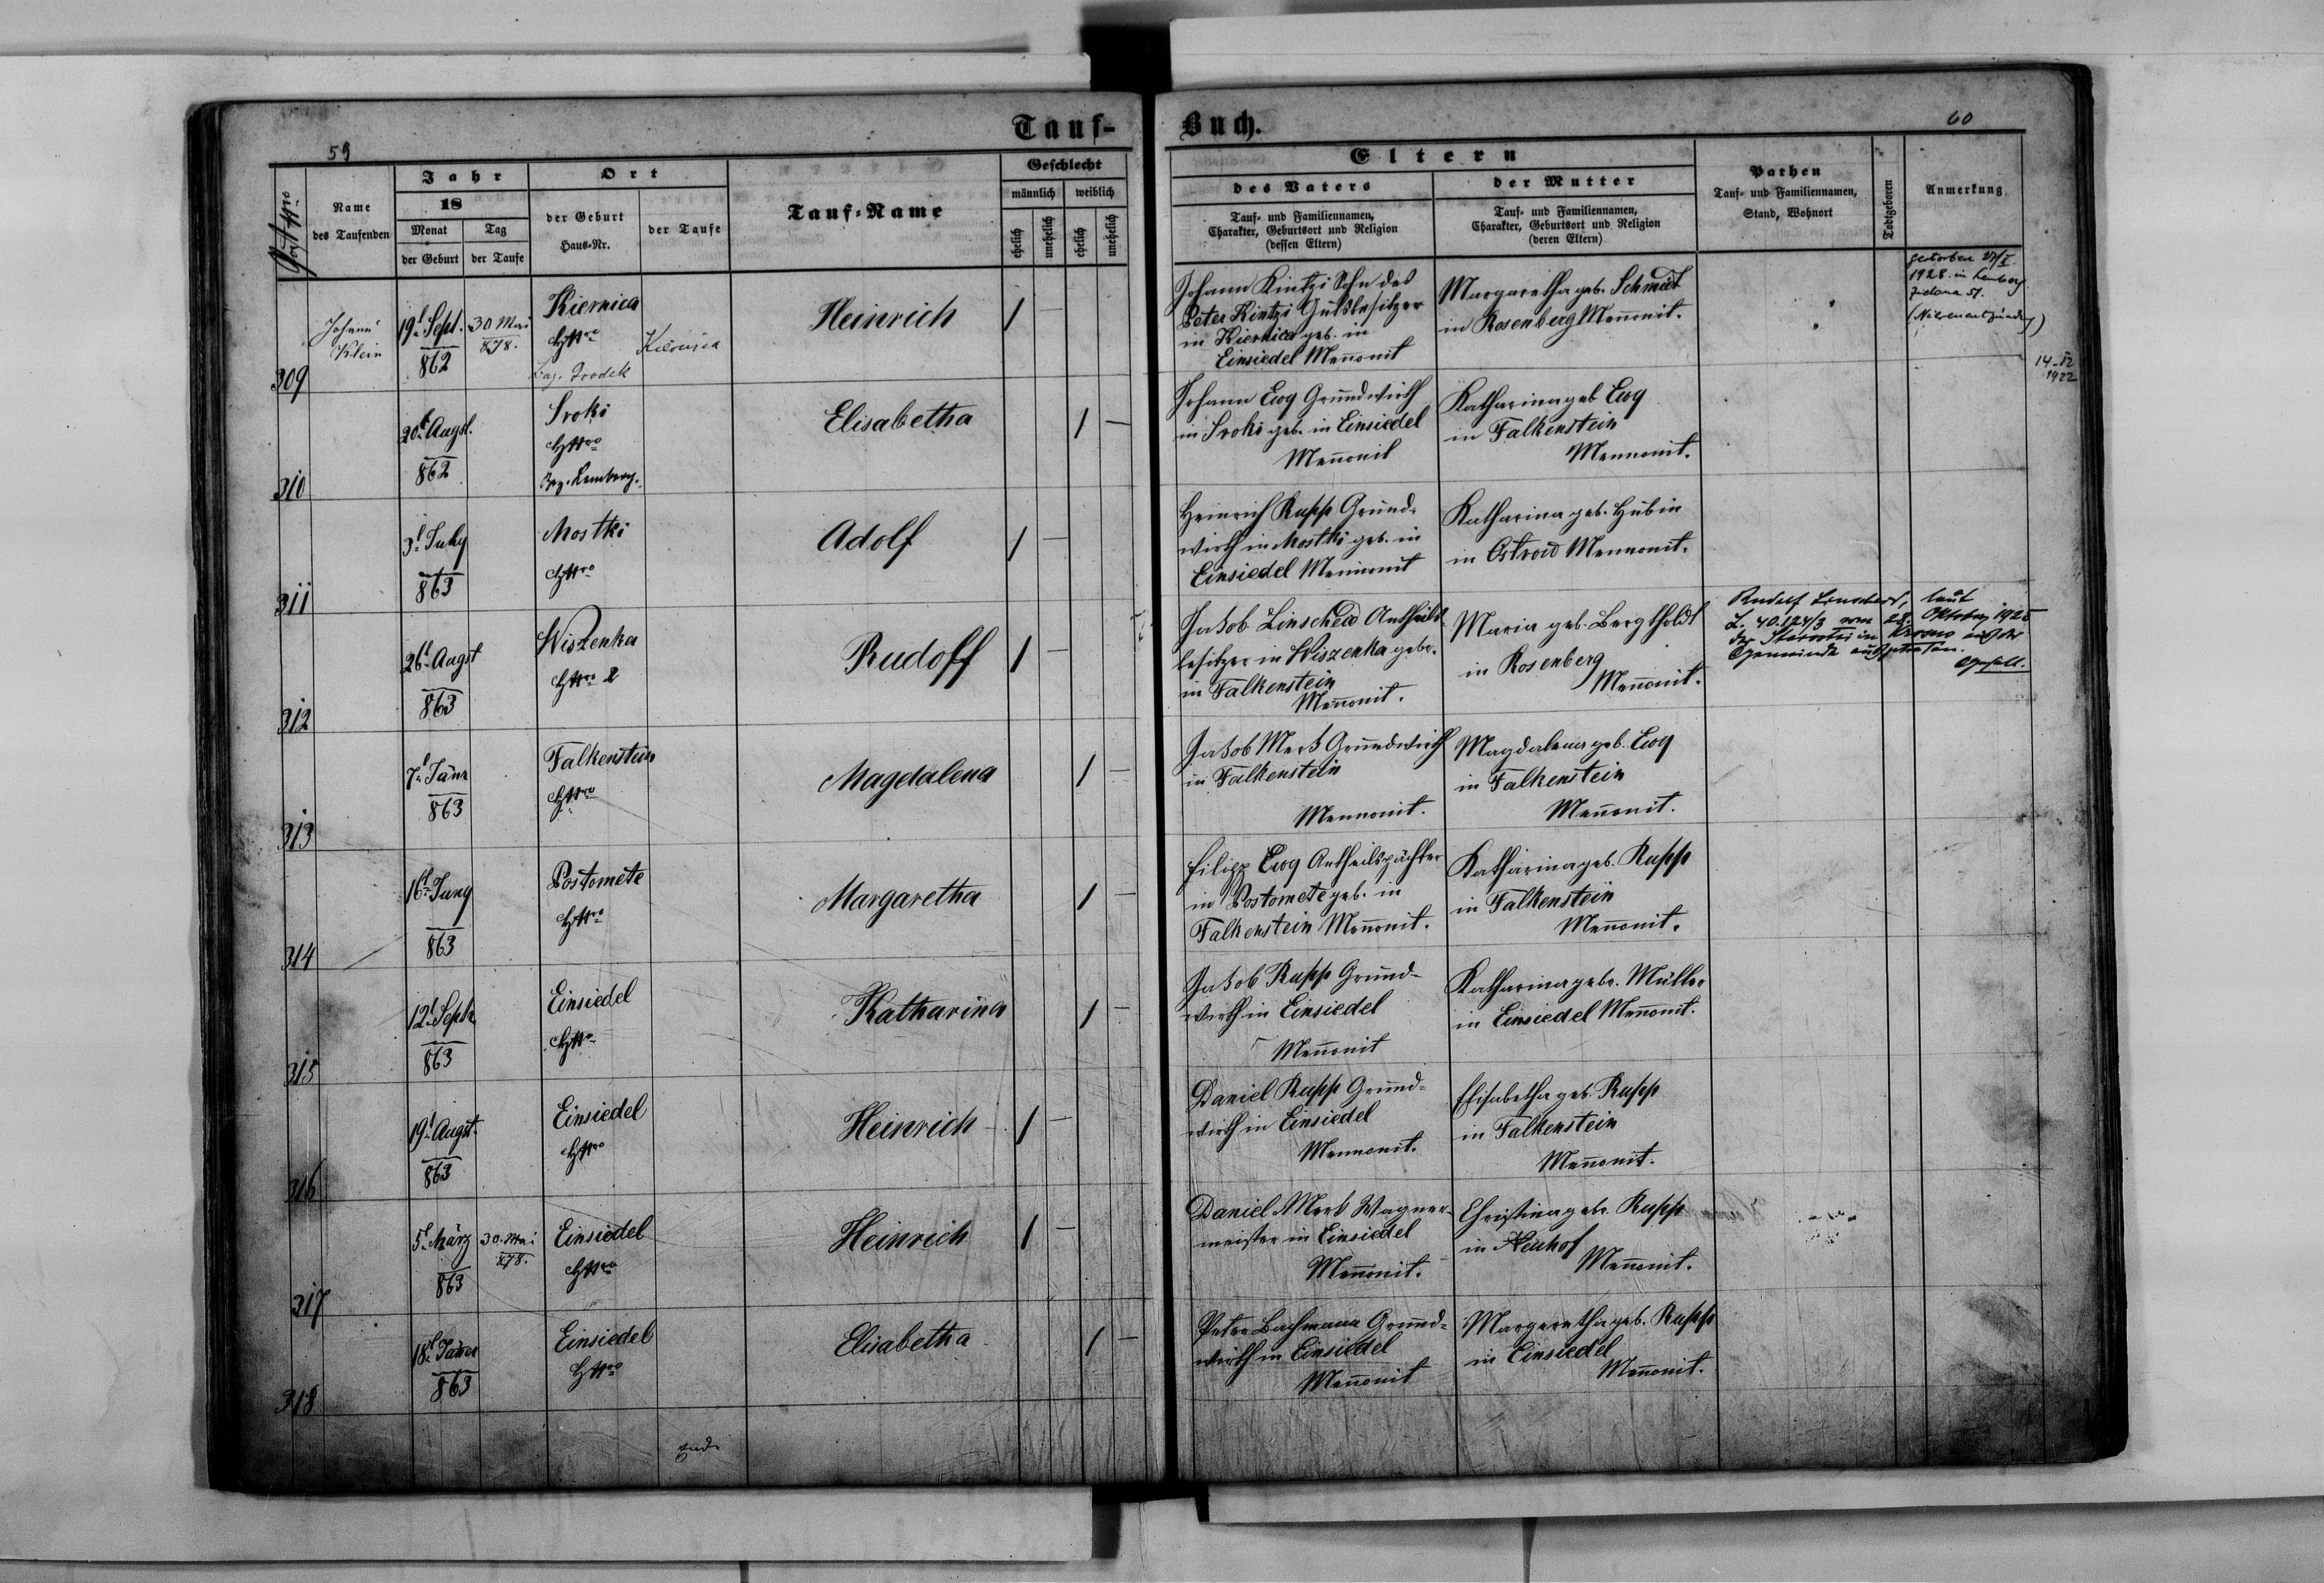 Tauf-
Buch.
59
60
Post Nro
Name
des Taufenden
Jahr
18
Monat
der Geburt
Tag
der Taufe
Ort
der Geburt
Haus-Nr.
der Taufe
Tauf-Name
Geschlecht
männlich
weiblich
ehelich
unehelich
ehelich
unehelich
Eltern
des Vaters
Tauf- und Familiennamen,
Charakter, Geburtsort und Religion
(dessen Eltern)
der Mutter
Tauf- und Familiennamen,
Charakter, Geburtsort und Religion
(deren Eltern)
Pathen
Tauf- und Familiennamen,
Stand, Wohnort
Todtgeboren
Anmerkung
309
Johann
Klein
19t Sept.
862
30 Mai
878.
Kiernica
HNro
Bez. Grodek
Kiernica
Heinrich
Johann Kintzi Sohn des
Peter Kintzi Gutsbesitzer
in Kiernica geb. in
Einsiedel Menonit
Margaretha geb. Schmidt
in Rosenberg Menonit.
gestorben
1928. in Lemberg
Zielona 51.
(Nierenentzündung)
14-IV
1922
310
20t Augst.
862
Sroki
HNro
Bez. Lemberg.
Elisabetha
Johann Ewy Grundwirth
in Sroki geb. in Einsiedel
Menonit
Katharina geb Ewy
in Falkenstein
Mennonit.
311
3t July
863
Mostki
HNro
Adolf
Heinrich Rupp Grund-
wirth in Mostki geb. in
Einsiedel Mennonit
Katharina geb. Hubin
in Ostrow Mennonit.
312
26t Augst
863
Wiszenka
HNro 2
Rudoff
Jakob Linscheid Antheils-
besitzer in Wiszenka gebr.
in Falkenstein
Menonit.
Maria geb. Bergtholdt
in Rosenberg
Menonit.
Rudolf Linscheid, laut
Z. 40.124/3 vom 28. Oktober 1925
der Starostei in Krosno aus der
Gemeinde ausgetreten.
313
7t Jänr
863
Falkenstein
HNro
Magdalena
Jakob Merk Grundwirth
in Falkenstein
Mennonit.
Magdalena geb. Ewy
in Falkenstein
Menonit.
314
16t Juny
863
Postomete
HNro
Margaretha
Filipp Ewy Antheilspächter
in Postomete geb. in
Falkenstein Menonit.
Katharina geb. Rupp
in Falkenstein
Menonit.
315
12t Septr
863
Einsiedel
HNro
Katharina
Jakob Rupp Grund-
wirth in Einsiedel
Menonit
Katharina gebr. Müller
in Einsiedel Menonit.
316
19t Augst.
863
Einsiedel
HNro
Heinrich
Daniel Rupp Grund-
wirth in Einsiedel
Mennonit.
Elisabetha geb. Rupp
in Falkenstein
Menonit.
317
5t März
863
30. Mai
878.
Einsiedel
HNro
Heinrich
Daniel Merk Wagner-
meister in Einsiedel
Menonit.
Christina gebr. Rupp
in Neuhof
Menonit.
318
18t Jäner
863
Einsiedel
HNro
Elisabetha
Peter Bachmann Grund-
wirth in Einsiedel
Menonit
Margaretha geb. Rupp
in Einsiedel
Menonit.
Ende